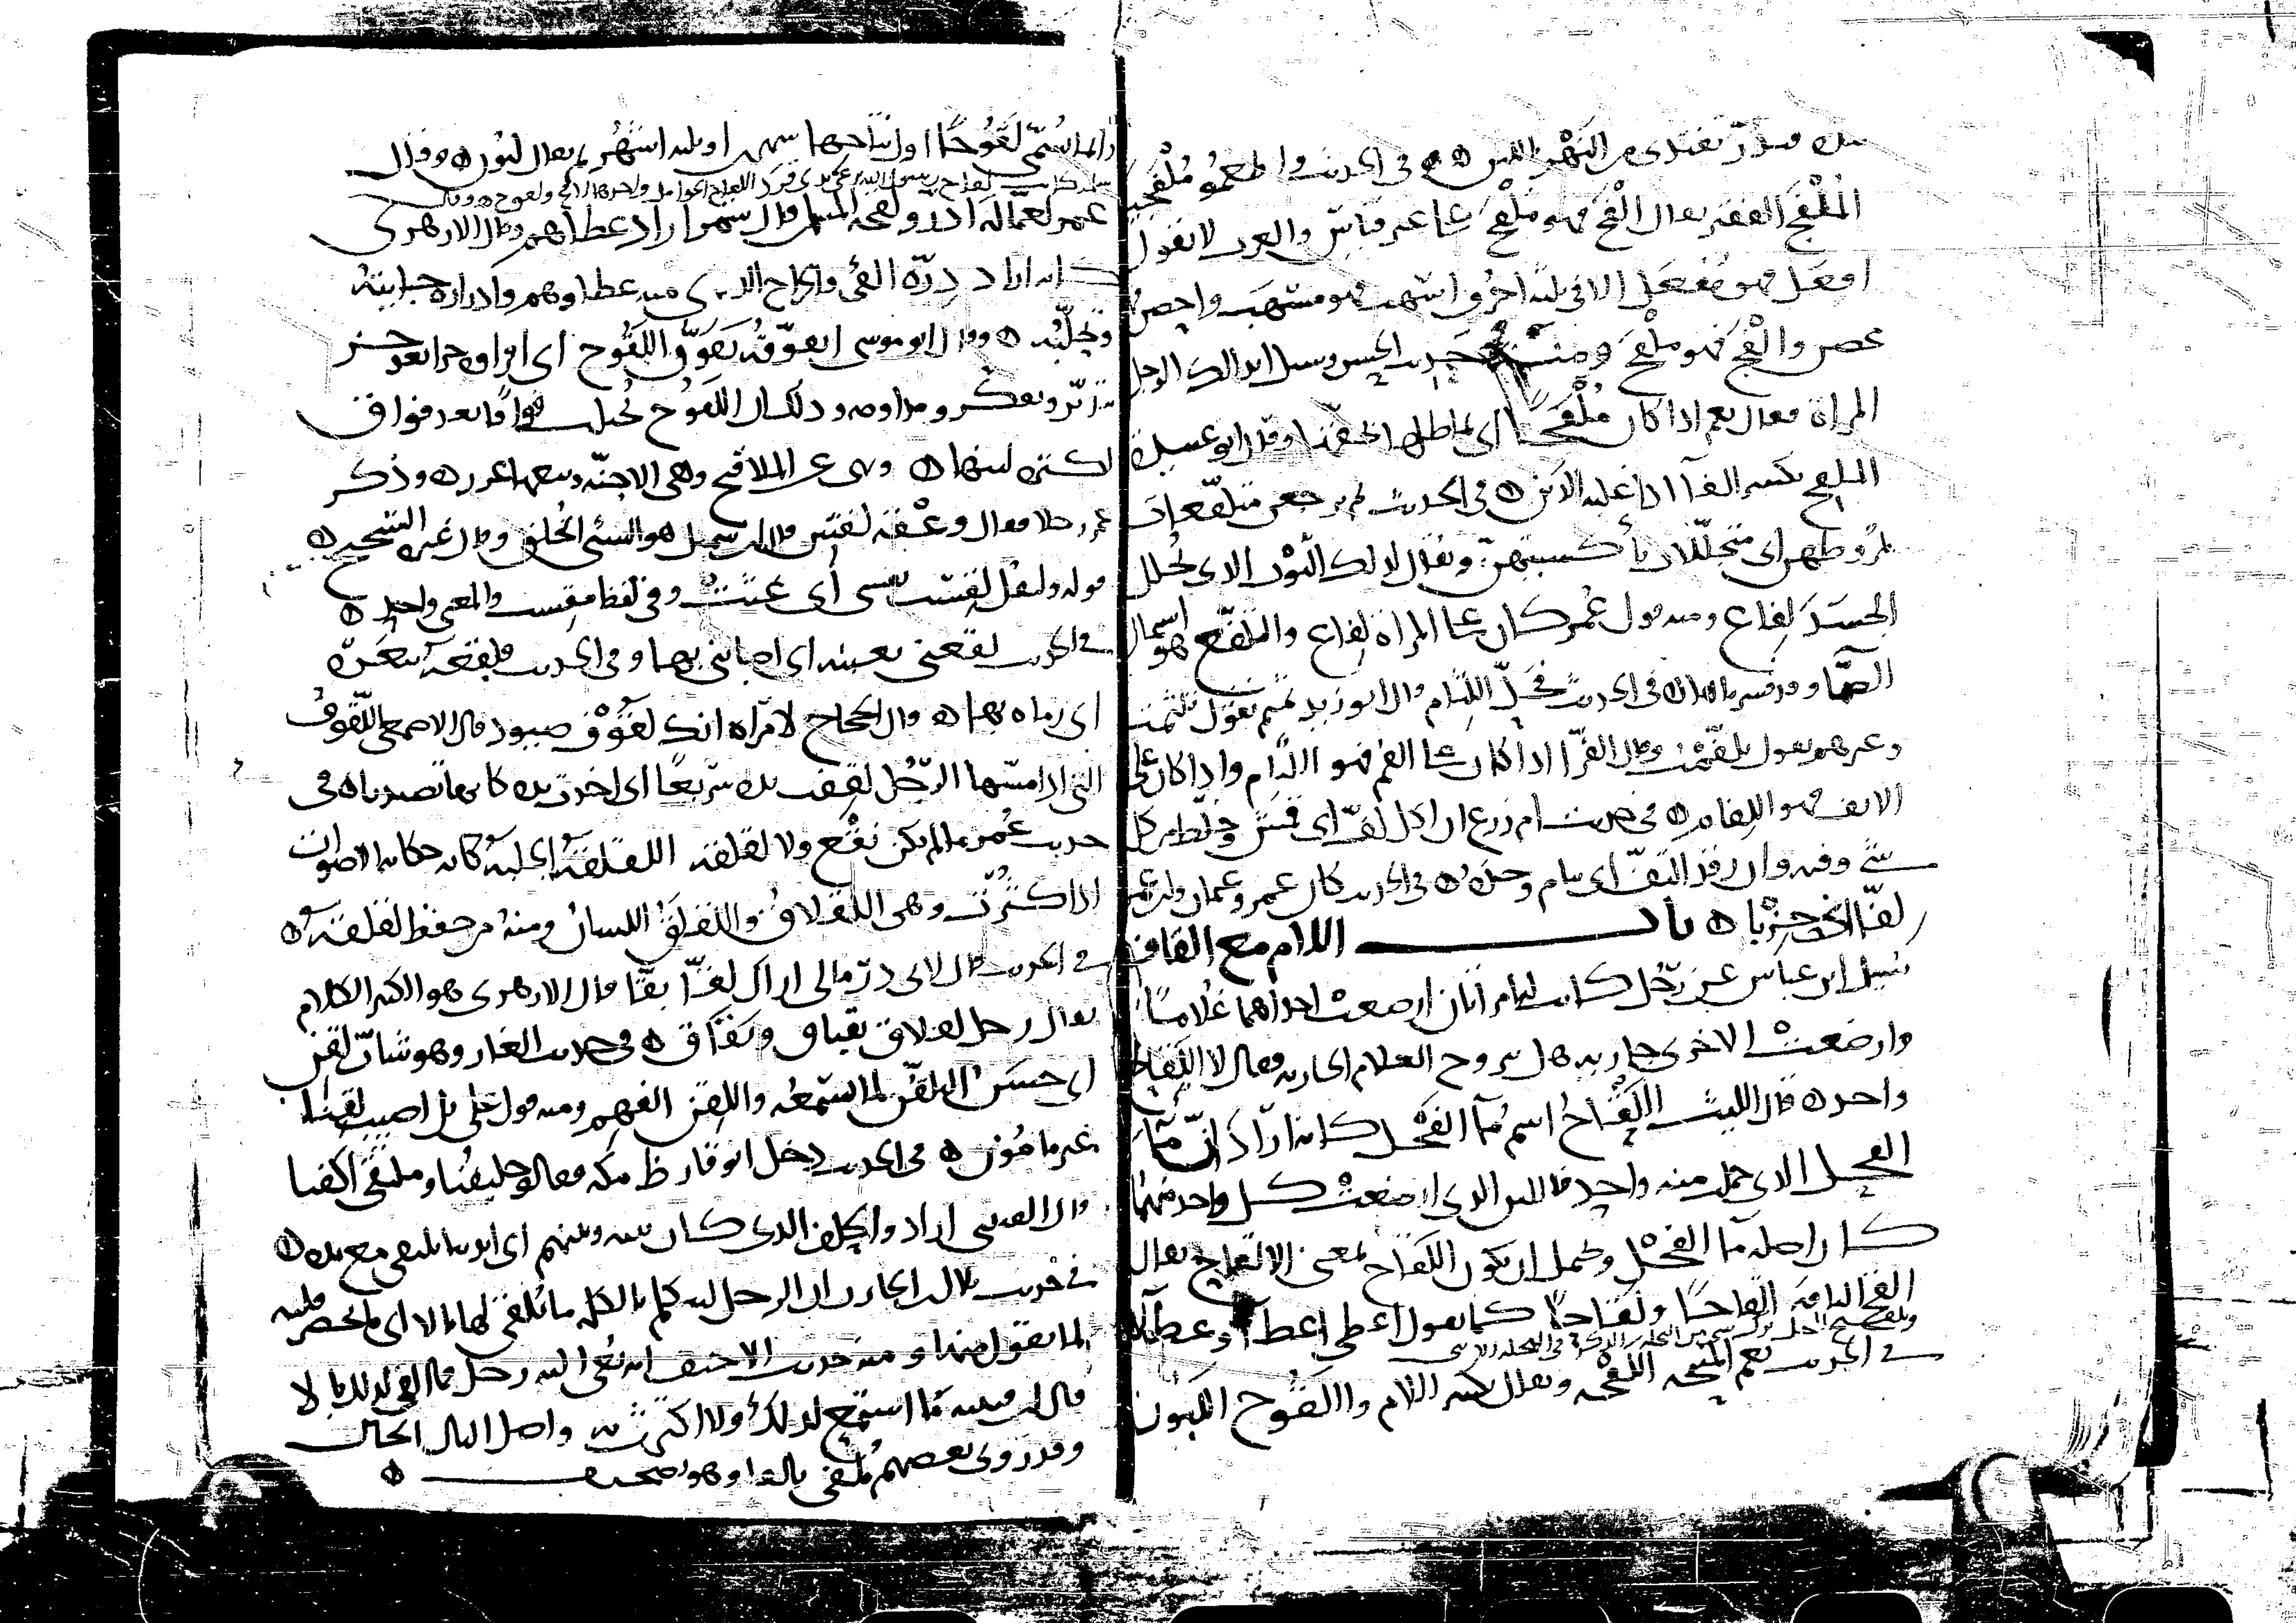 في الحديث واطعموا ملفجيكم
الملفج الفقير يقال الفج فهو ملفج على غير قياس والعرب لا تقول
افعل فهو مفعل الا في ثلثة احرف اسهب فهو مسهب واحصن فهو
محصن والفج فهو ملفج ومنه حديث الحسن وسئل ايدالك الرجل
المراة فقال نعم اذا كان ملفجا اي يماطلها وقال ابو عبيد
الملفج بكسر الفآ اذا غلبه الدين في الحديث ثم يرجعن متلفعات
بمروطهن اي متجللات بأكسيتهن ويقال لذلك الثوب الذي يجلل
الجسد لفاع ومنه قول عمر كان على المراة لفاع والتلفع هو اشتمال
الصما في الحديث محل اللثام قال ابو زيد تميم تقول تلثمت
وغيرهم يقول تلفمت وقال الفرآ اذا كان على الفم فهو اللثام واذا كان على
الانف فهو اللفام في حديث ام زرع ان اكل لف اي قمش وخلط من كل
شي وفيه وان رقد التف اي نام وحده في الحديث كان عمر وعثمان وابن عمر
لفا اي حزبا باب اللام مع القاف
سئل ابن عباس عن رجل كانت له امرأتان ارضعت احداهما غلاما
وارضعت الاخرى جارية هل يتزوج الغلام الجارية فقال لا اللقاح
واحد قال الليث اللقاح اسم مآ الفحل كانه اراد ان مآ
الفحل الذي حمل منه واحد فاللبن الذي ارضعت كل واحدة منهما
كان اصله مآ الفحل ويحتمل ان يكون اللقاح بمعنى الالقاح يقال
القح الناقة القاحا ولقاحا كما يقول اعطى اعطآ وعطآ
في الحديث نعم المنحة اللقحة ويقال بكسر اللام واللقوح اللبون
وانما سمي لقوحا اول نتاجها شهرين او ثلثة اشهر ثم يقال لبون وقال
عمر لعماله ادروا لقحة المسلمين قال شمر اراد عطاهم وقال الازهري
كانه اراد درة الفئ والخراج الذي منه عطاوهم وادراره جبايته
وتحلبه وقال ابو موسى اتفوقه تفوق اللقوح اي اقراه جزا بعد جز
بتدبر وتفكر ومداومة وذلك ان اللقوح تحلب فواقا بعد فواق
لكثرة لبنها ونهى عن الملاقيح وهي الاجنة وبيعها غرر وذكر
عمر رجلا فقال وعقة لقس قال ابن شميل هو السئ الخلق وقال غيره الشحيح
قوله وليقل لقست نفسي أي غثت وفي لفظ مقست والمعنى واحد
في الحديث لقعني بعينه اي اصابني بها وفي الحديث فلقعه ببعرة
اي رماه بها قال الحجاج لامرآة انك لقوف صيود قال الاصمعي اللقوف
التي اذا مسها الرجل لقفت يده سريعا اي اخذت يده كانها تصيدها في
حديث عمر ما لم يكن نقع ولا لقلقة اللقلقة الجلبة كانه حكاية الاصوات
اذا كثرت وهي اللقلاق واللقلق اللسان ومنه من حفظ لقلقه
في الحديث قال لابي ذر مالي اراك لقا بقا قال الازهري هو الكثير الكلام
يقال رجل لقلاق بقباق وبقاق في حديث الغار وهو شاب لقن
اي حسن التلقن لما يسمعه واللقن الفهم ومنه قول علي بل اصيب لقنا
غير مامون في الحديث دخل ابو قارظ مكة فقالوا حليفنا وملتقى اكفنا
قال القتيبي اراد والحلف الذي كان بينه وبينهم اي ايدينا تلتقي مع يده
في حديث بلال ابن الحارث ان الرجل ليتكلم بالكلمة ما يلقي لها بالا اي لا يحضر قلبه
لما يقول منها ومنه حديث الاحنف انه نعي اليه رجل فما القى لذلك بالا
قال ابن قتيبة ما استمع لذلك ولا اكترث به واصل البال الحال
وقد روى بعضهم يلفي بالفا وهو تصحيف